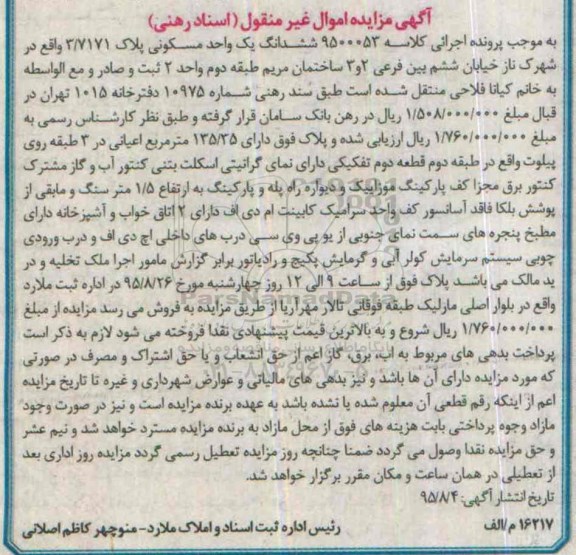 آگهی مزایده اموال غیر منقول (اسناد رهنی)
به موجب پرونده اجرائی کلاسه ۹۵۰۰۰۵۳ ششدانگ یک واحد مسکونی پلاک ۳/۷۱۷۱ واقع در
شهرک ناز خیابان ششم بین فرعی ۲و۳ ساختمان مریم طبقه دوم واحد ۲ ثبت و صادر و مع الواسطه
به خانم کیانا فلاحی منتقل شده است طبق سند رهنی شماره ۱۰۹۷۵ دفترخانه ۱۰۱۵ تهران در
قبال مبلغ ۱/۵۰۸/۰۰۰/۰۰۰ ریال در رهن بانک سامان قرار گرفته و طبق نظر کارشناس رسمی به
مبلغ ۱/۷۶۰/۰۰۰/۰۰۰ ریال ارزیابی شده و پلاک فوق دارای ۱۳۵/۳۵ مترمربع اعیانی در ۳ طبقه روی
پیلوت واقع در طبقه دوم قطعه دوم تفکیکی دارای نمای گرانیتی اسکلت بتنی کنتور آب و گاز مشترک
کنتور برق مجزا کف پارکینگ موزاییک و دیواره راه پله و پارکینگ به ارتفاع ۱/۵ متر سنگ و مابقی از
پوشش بلکا فاقد آسانسور کف واحد سرامیک کابینت ام دی اف دارای ۲ اتاق خواب و آشپزخانه دارای
مطبخ پنجره های سمت نمای جنوبی از یو پی وی سی درب های داخلی اچ دی اف و درب ورودی
چوبی سیستم سرمایش کولر آبی و گرمایش پکیج و رادیاتور برابر گزارش مامور اجرا ملک تخلیه و در
ید مالک می باشد پلاک فوق از ساعت ۹ الی ۱۲ روز چهارشنبه مورخ ۹۵/۸/۲۶ در اداره ثبت ملارد
واقع در بلوار اصلی مارلیک طبقه فوقانی تالار مهرآریا از طریق مزایده به فروش می رسد مزایده از مبلغ
۱/۷۶۰/۰۰۰/۰۰۰ ریال شروع و به بالاترین قیمت پیشنهادی نقدا فروخته می شود لازم به ذکر است
پرداخت بدهی های مربوط به آب، برق، گاز اعم از حق انشعاب و یا حق اشتراک و مصرف در صورتی
که مورد مزایده دارای آن ها باشد و نیز بدهی های مالیاتی و عوارض شهرداری و غیره تا تاریخ مزایده
اعم از اینکه رقم قطعی آن معلوم شده یا نشده باشد به عهده برنده مزایده است و نیز در صورت وجود
مازاد وجوه پرداختی بابت هزینه های فوق از محل مازاد به برنده مزایده مسترد خواهد شد و نیم عشر
و حق مزایده نقدا وصول می گردد ضمنا چنانچه روز مزایده تعطیل رسمی گردد مزایده روز اداری بعد
از تعطیلی در همان ساعت و مکان مقرر برگزار خواهد شد.
تاریخ انتشار آگهی: ۹۵/۸/۴
۱۶۲۱۷ م/الف رئیس اداره ثبت اسناد و املاک ملارد- منوچهر کاظم اصلانی